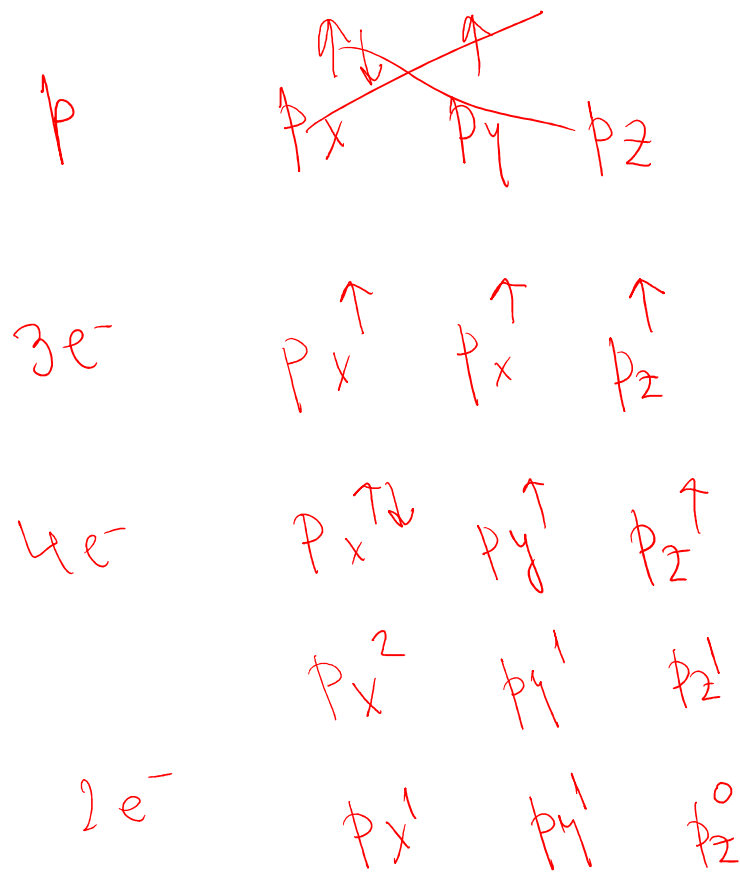 ↑↓ ↑
p px py pz
3e⁻ px↑ px↑ pz↑
4e⁻ px↑↓ py↑ pz↑
px² py¹ pz¹
2e⁻ px¹ py¹ pz⁰